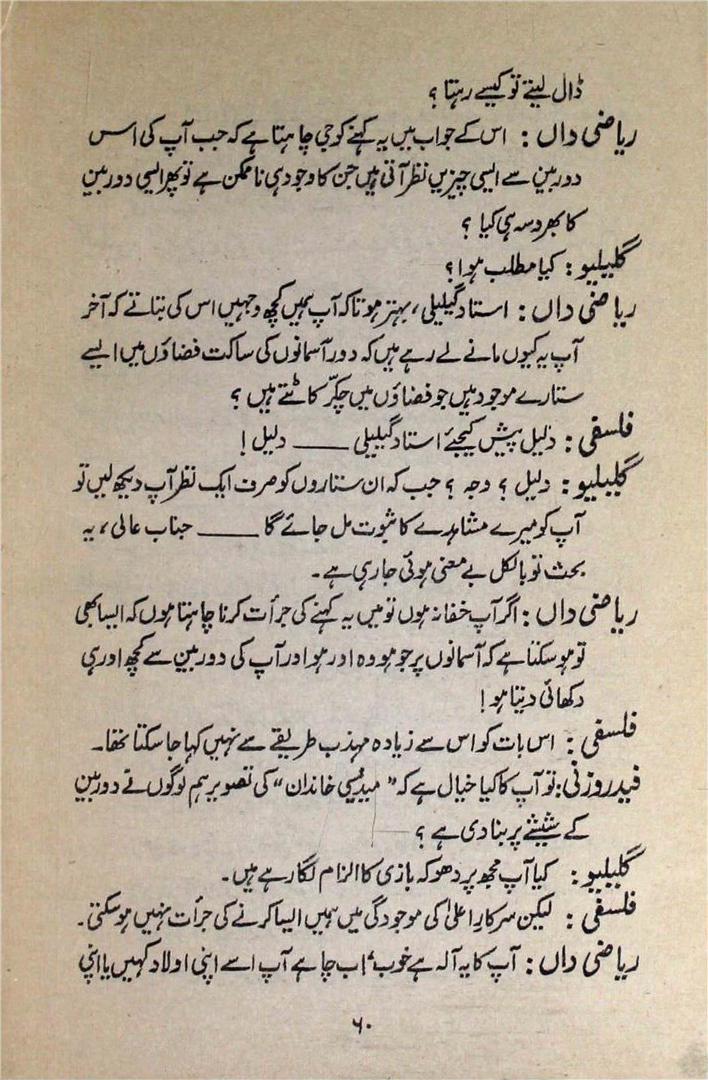 ڈال لیتے تو کیسے رہتا ؟
ریاضی داں : اس کے جواب میں یہ کہنے کو جی چاہتا ہے کہ جب آپ کی اس
دوربین سے ایسی چیزیں نظر آتی ہیں جن کا وجود ہی ناممکن ہے تو پھر ایسی دوربین
کا بھروسہ ہی کیا ؟
گلیلیو : کیا مطلب ہوا ؟
ریاضی داں : استاد گیلیلی ، بہتر ہوتا کہ آپ ہمیں کچھ وجہیں اس کی بتاتے کہ آخر
آپ یہ کیوں مانے لے رہے ہیں کہ دور آسمانوں کی ساکت فضاؤں میں ایسے
ستارے موجود ہیں جو فضاؤں میں چکّر کاٹتے ہیں ؟
فلسفی : دلیل پیش کیجئے استاد گیلیلی ـــــ دلیل !
گلیلیو : دلیل ؟ وجہ ؟ جب کہ ان ستاروں کو صرف ایک نظر آپ دیکھ لیں تو
آپ کو میرے مشاہدے کا ثبوت مل جائے گا ـــــ جناب عالی ، یہ
بحث تو بالکل بے معنی ہوئی جا رہی ہے ۔
ریاضی داں : اگر آپ خفا نہ ہوں تو میں یہ کہنے کی جرأت کرنا چاہتا ہوں کہ ایسا بھی
تو ہو سکتا ہے کہ آسمانوں پر جو ہو وہ اور ہو اور آپ کی دوربین سے کچھ اور ہی
دکھائی دیتا ہو !
فلسفی : اس بات کو اس سے زیادہ مہذب طریقے سے نہیں کہا جا سکتا تھا ۔
فیدروزنی : تو آپ کا کیا خیال ہے کہ " میڈیسی خاندان " کی تصویر ہم لوگوں نے دوربین
کے شیشے پر بنا دی ہے ؟
گلیلیو : کیا آپ مجھ پر دھوکہ بازی کا الزام لگا رہے ہیں ۔
فلسفی : لیکن سرکارِ اعلیٰ کی موجودگی میں ہمیں ایسا کرنے کی جرأت نہیں ہو سکتی ۔
ریاضی داں : آپ کا یہ آلہ ہے خوب ، اب چاہے آپ اسے اپنی اولاد کہیں یا اپنی
۶۰